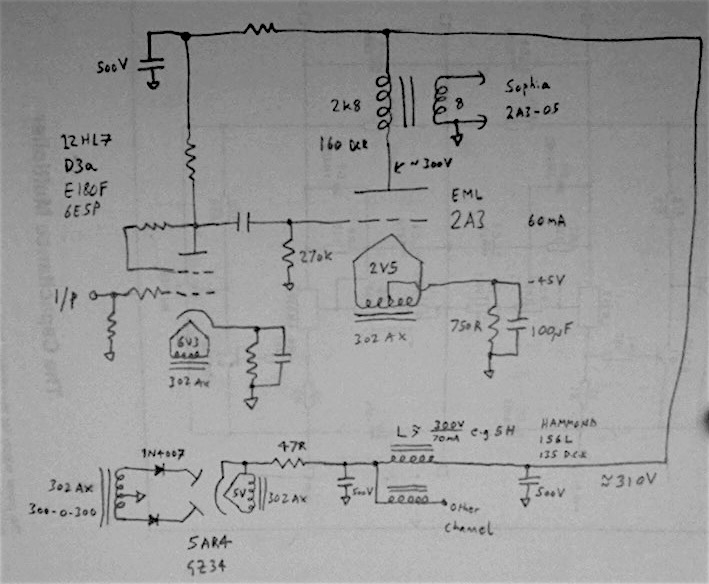 500V
2k8
160 DCR
8
Sophia
2A3-05
12HL7
D3a
E180F
6E5P
~300V
EML
2A3
60mA
270k
2V5
302 AX
-45V
750R
100µF
I/P
6V3
302 AX
1N4007
302 AX
300-0-300
5V
302AX
5AR4
GZ34
47R
500V
L ≥ 300V/70mA e.g 5H
Other
channel
HAMMOND
156L
135 DCR
500V
≈310V
The Capacitance Multiplier